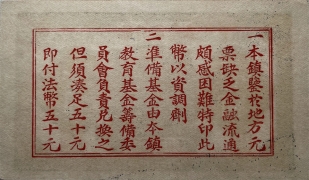 一本鎮鑒於地方元
票缺乏金融流通
頗感困難特印此
幣以資調劑
二準備基金由本鎮
教育基金籌備委
員會負責兌換之
但須湊足五十元
即付法幣五十元